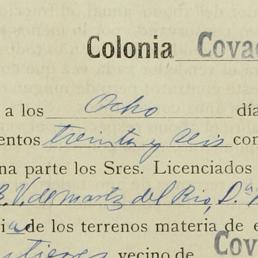 Colonia Cova
a los Ocho día
entos treinta y seis con
na parte los Sres. Licenciados
V. de Martz del Rio, D.ª
ia de los terrenos materia de e
vecino de Cov